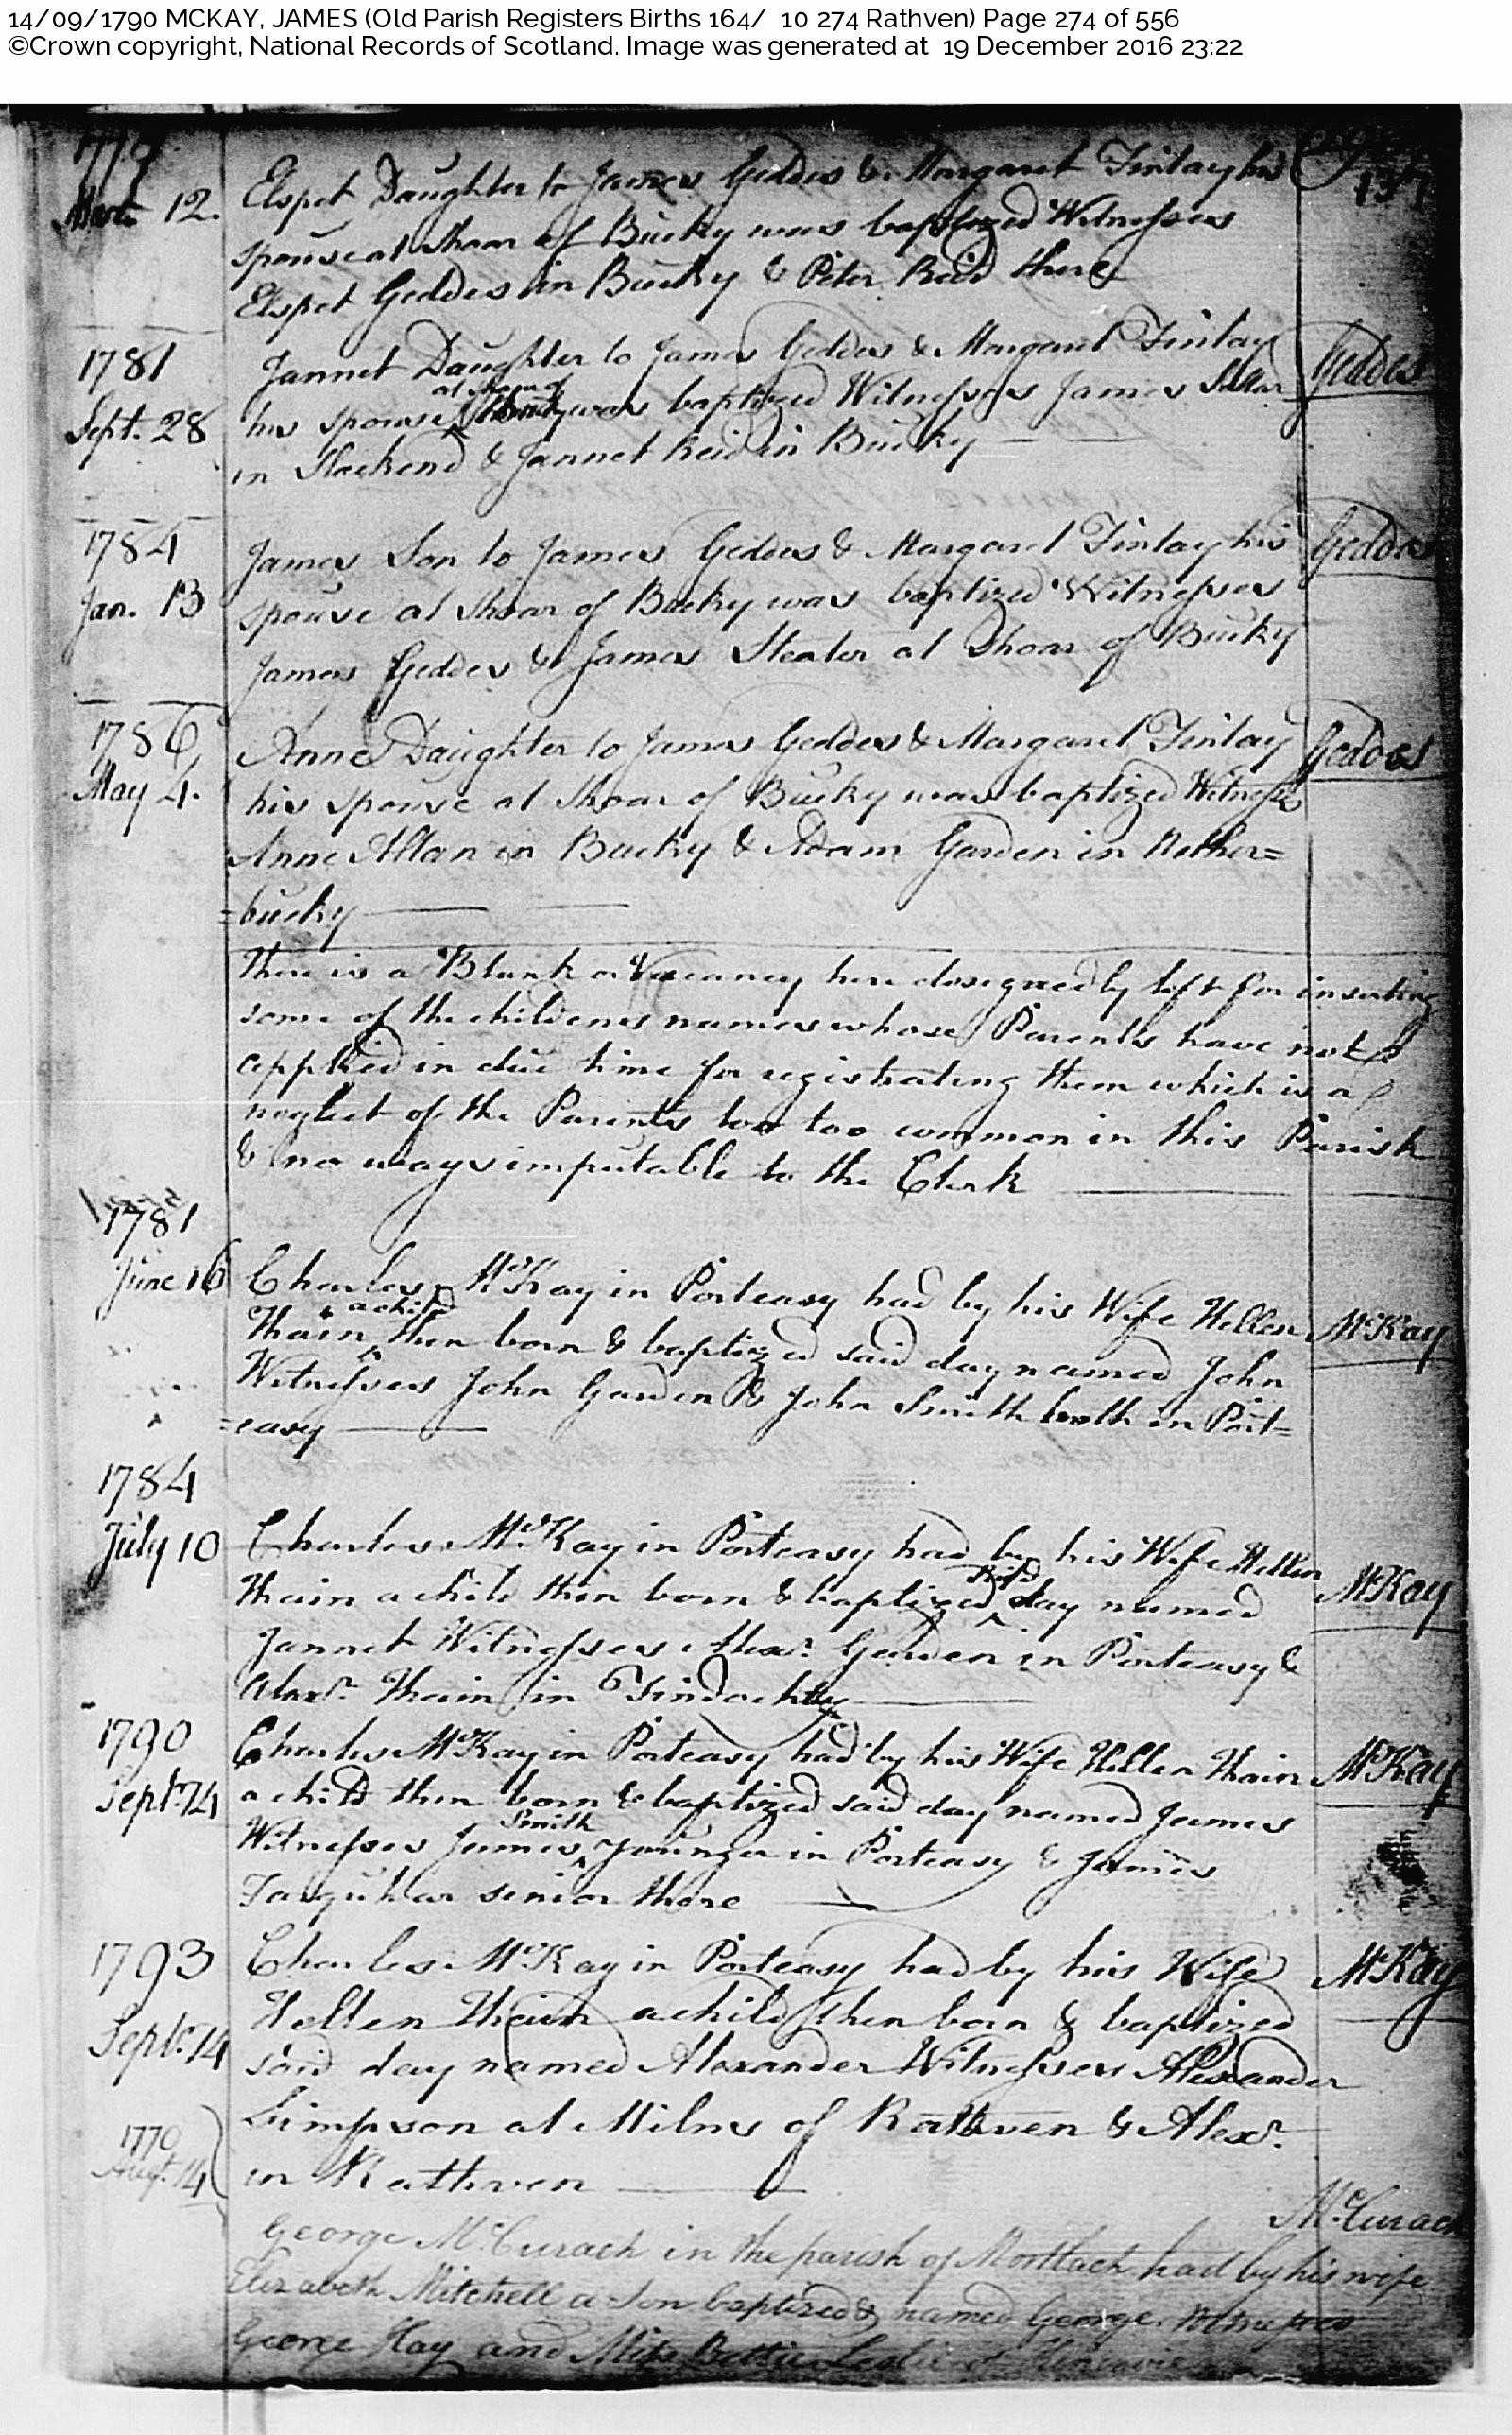 14/09/1790 MCKAY, JAMES (Old Parish Registers Births 164/ 10 274 Rathven) Page 274 of 556
©Crown copyright, National Records of Scotland. Image was generated at 19 December 2016 23:22
1779
March 12.
137
Elspet Daughter to James Geddes & Margaret Finlay his
spouse at Shoar of Bucky was baptized Witnesses
Elspet Geddes in Bucky & Peter Reid there
1781
Sept. 28
Geddes
Jannet Daughter to James Geddes & Margaret Finlay
at Shoar of
his spouse Bucky was baptized Witnesses James Slater
in Slackend & Jannet Reid in Bucky
1784
Jan. 13
Geddes
James Son to James Geddes & Margaret Finlay his
spouse at Shoar of Bucky was baptized Witnesses
James Geddes & James Sleater at Shoar of Bucky
1786
May 4.
Geddes
Anne Daughter to James Geddes & Margaret Finlay
his spouse at Shoar of Bucky was baptized Witnesses
Anne Allan in Bucky & Adam Garden in Nether=
=bucky
There is a Blank or Vacancy here designedly left for inserting
some of the childrens names whose Parents have not
applied in due time for registrating them which is a
neglect of the Parents too too common in this Parish
& no ways imputable to the Clerk
1781
June 16
McKay
Charles McKay in Porteasy had by his Wife Hellen
a child
Thain then born & baptized said day named John
Witnesses John Garden & John Smith both in Port=
=easy
1784
July 10
McKay
Charles McKay in Porteasy had by his Wife Hellen
said
Thain a child then born & baptized day named
Jannet Witnesses Alexr. Garden in Porteasy &
Alexr. Thain in Findochtty
1790
Septr. 14
McKay
Charles McKay in Porteasy had by his Wife Hellen Thain
a child then born & baptized said day named James
Smith
Witnesses James younger in Porteasy & James
Farquhar senior there
1793
Septr. 14
McKay
Charles McKay in Porteasy had by his Wife
Hellen Thain a child then born & baptized
said day named Alexander Witnesses Alexander
Simpson at Milns of Rathven & Alexr.
in Rathven
1770
Augt. 14
McCurach
George McCurach in the parish of Mortlach had by his wife
Elizabeth Mitchell a Son baptized & named George. Witnesses
George Hay and Miss Leslie of Kininvie